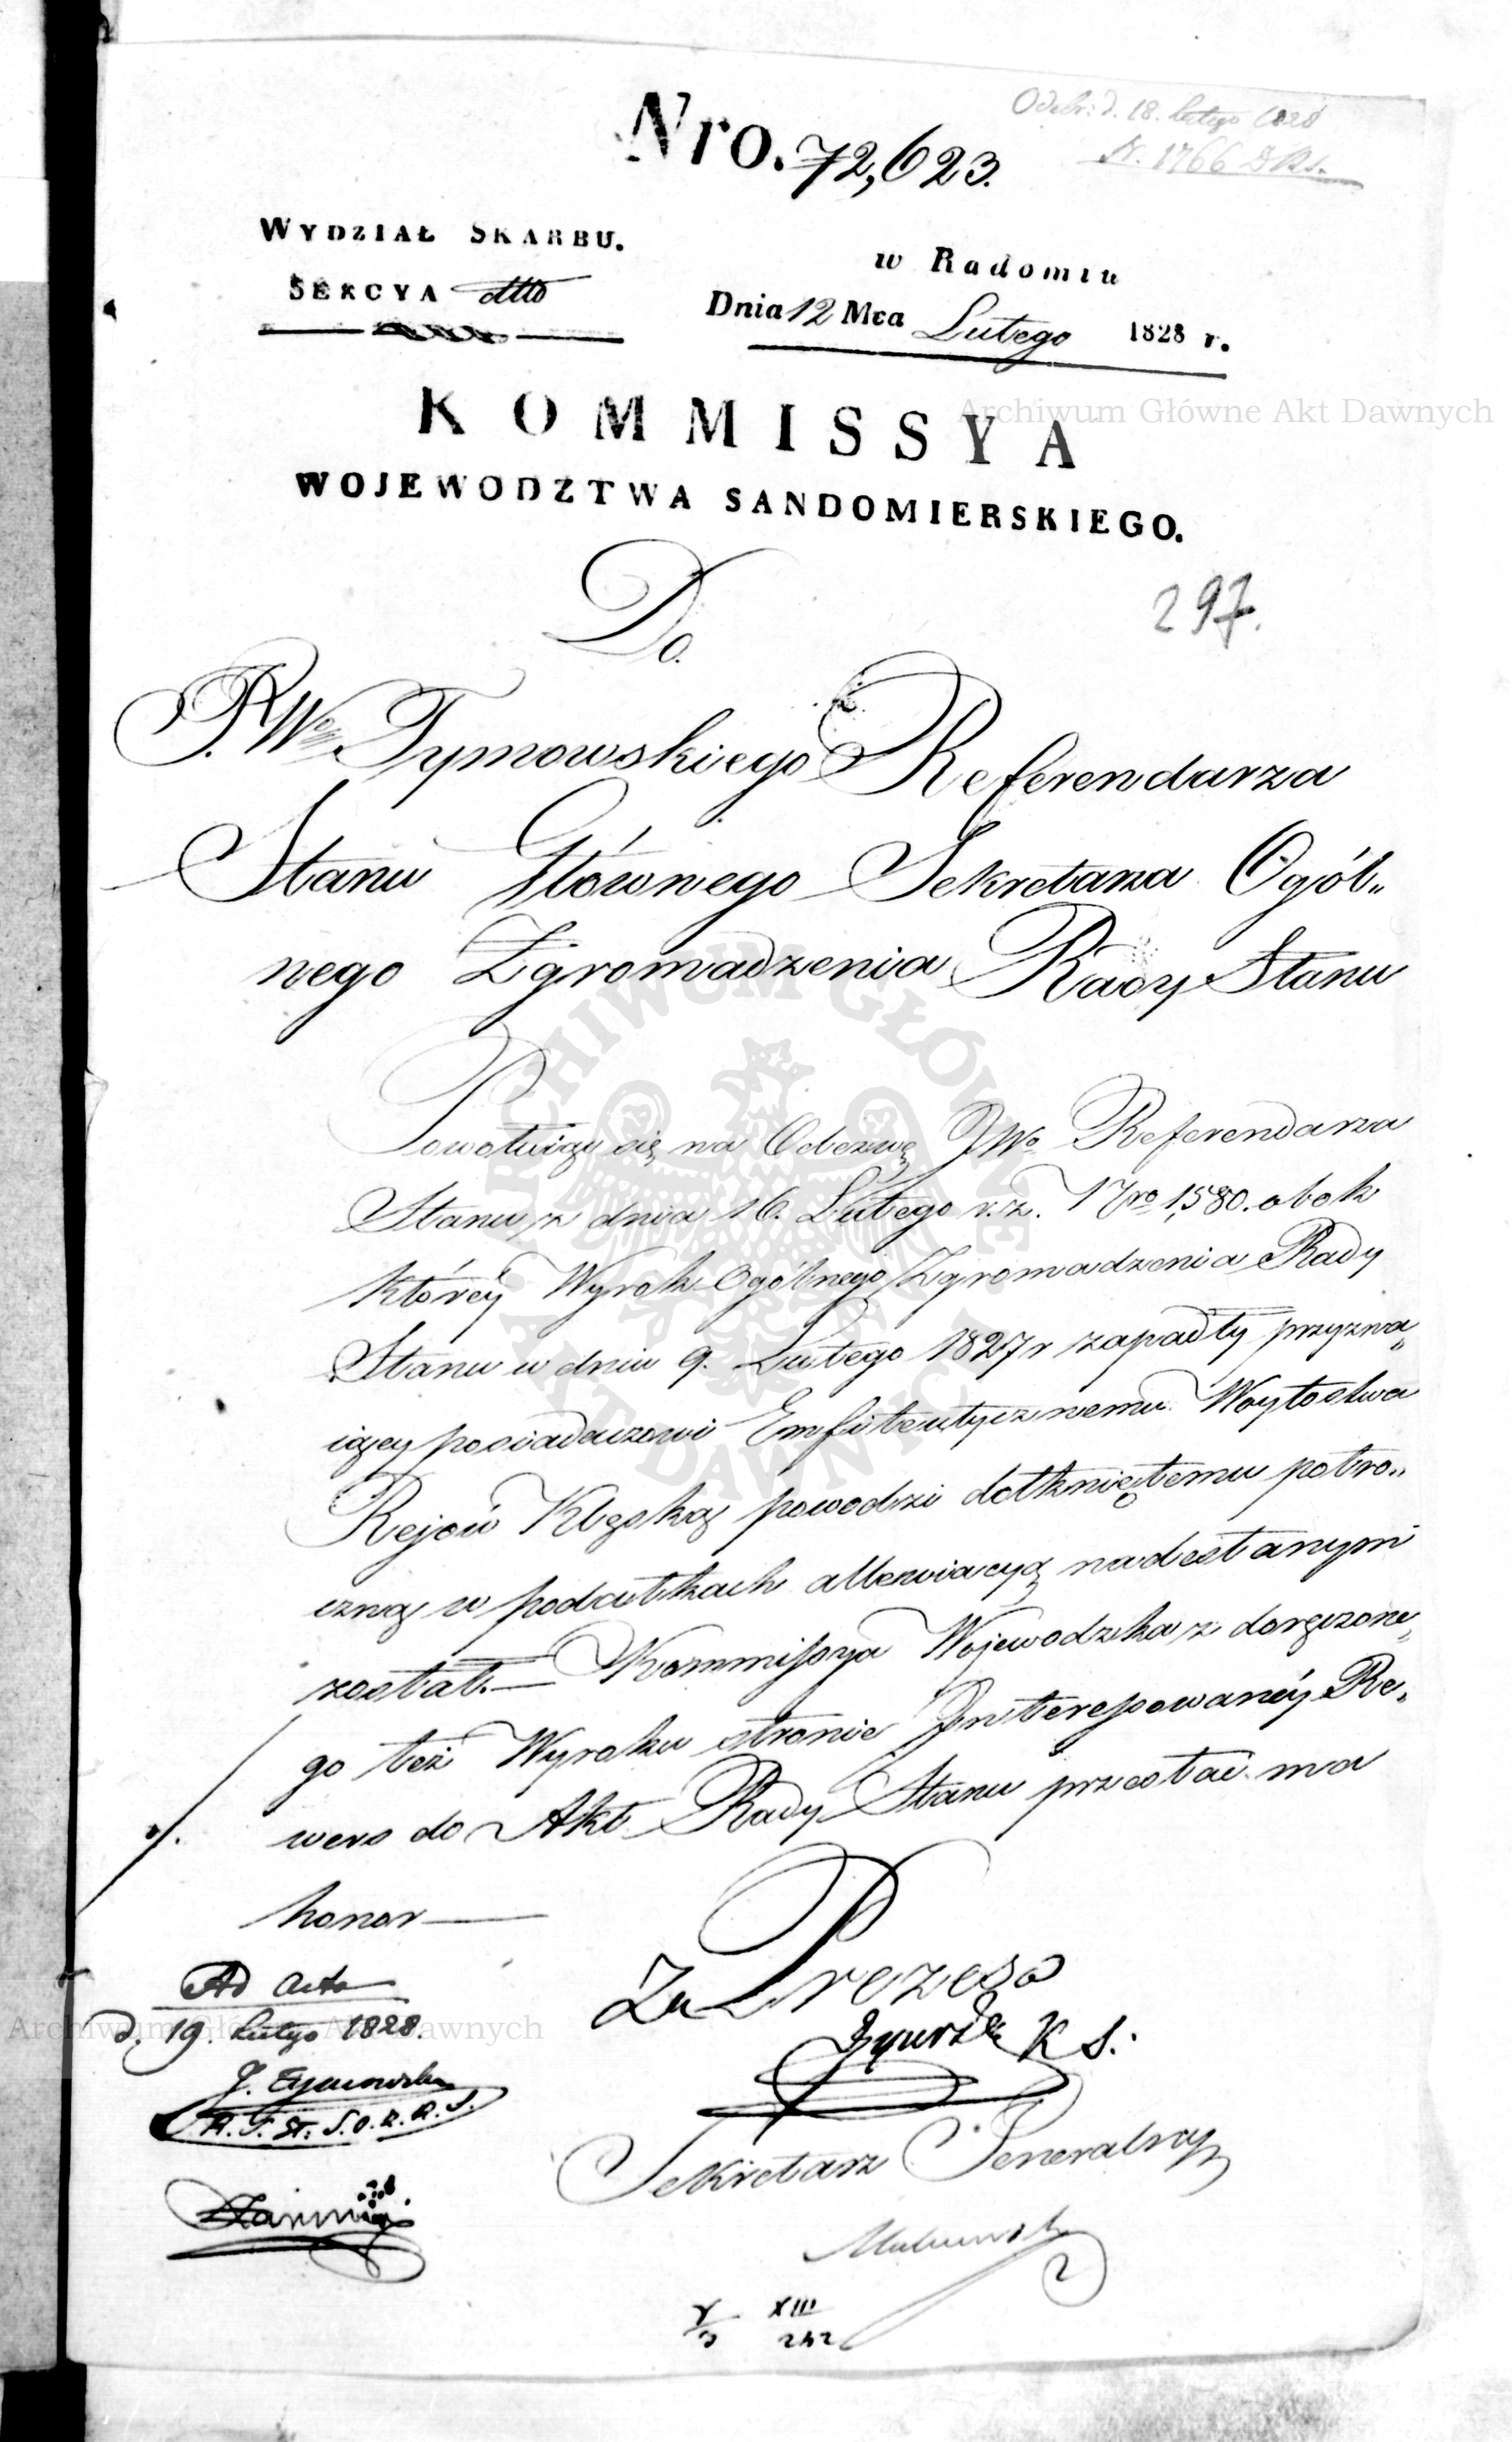 Odebr: d. 18. Lutego 1828
N. 1766 DRS.
Nro. 72,623.
WYDZIAŁ SKARBU.
SEKCYA
w Radomiu
Dnia 12 Mca Lutego 1828 r.
KOMMISSYA
WOJEWODZTWA SANDOMIERSKIEGO.
Do.
297.
JWo Tymowskiego Referendarza
Stanu Głównego Sekretarza Ogól„
nego Zgromadzenia Rady Stanu
Powołuiąc się na Odezwę JWo Referendarza
Stanu z dnia 16. Lutego r. z. Nro 1,580. obok
któréy Wyrok Ogólnego Zgromadzenia Rady
Stanu w dniu 9. Lutego 1827 r zapadły przyzna„
iący posiadaczowi Emfiteutycznemu Woytostwa
Rejów Klęską powodzi dotkniętemu potro„
czną w podatkach allewiacyą nadesłanym
został.— Kommissya Wojewodzka z doręczone„
go też Wyroku stronie Interessowanéy Re„
wers do Akt Rady Stanu przesłać ma
honor —
Za Prezesa
K S.
Sekretarz Generalny
Ad acta
d. 19. Lutego 1828.
J. Tymowski
R. S. St. S. O. Z. R. S.
XIII
242
Archiwum Główne Akt Dawnych
ARCHIWUM GŁÓWNE AKT DAWNYCH
Archiwum Główne Akt Dawnych